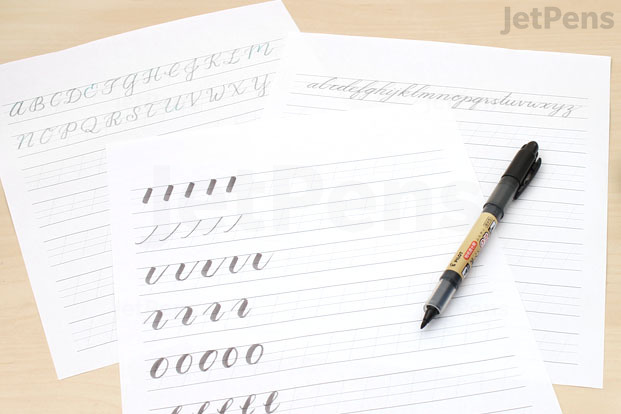 JetPens
A B C D E F G H I J K L M
N O P Q R S T U V W X Y
abcdefghijklmnopqrstuvwxyz
JetPens
o o o o o
l l l l l
PILOT